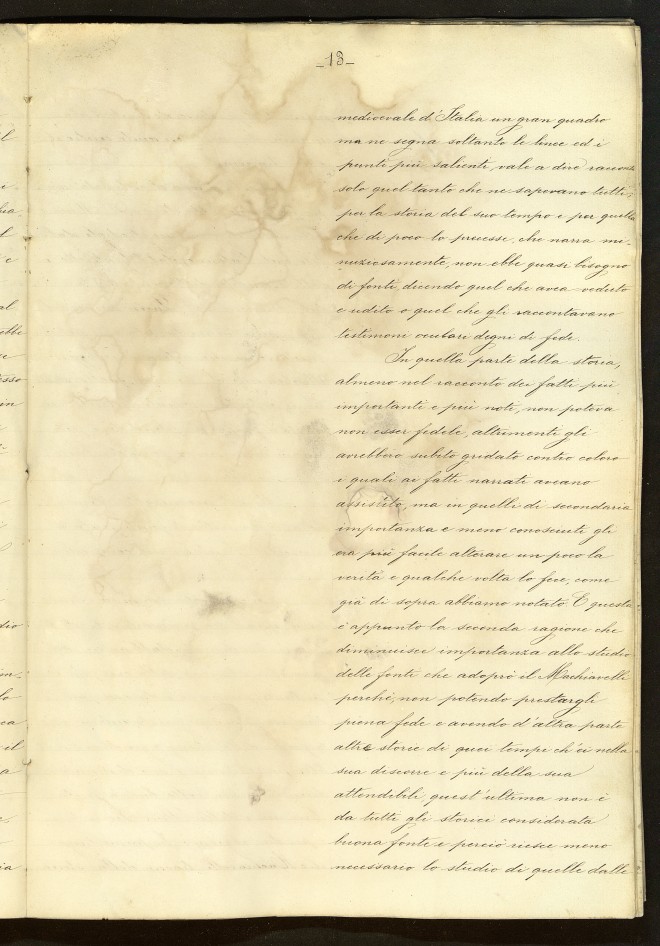 -13-
medioevale d'Italia un gran quadro
ma ne segna soltanto le linee ed i
punti più salienti, vale a dire racconta
solo quel tanto che ne sapevano tutti;
per la storia del suo tempo e per quella
che di poco lo precesse, che narra mi-
nuziosamente, non ebbe quasi bisogno
di fonti, dicendo quel che avea veduto
e udito o quel che gli raccontavano
testimoni oculari degni di fede.
In quella parte della storia,
almeno nel racconto dei fatti più
importanti e più noti, non poteva
non esser fedele, altrimenti gli
avrebbero subito gridato contro coloro
i quali ai fatti narrati aveano
assistito, ma in quelli di secondaria
importanza e meno conosciuti gli
era più facile alterare un poco la
verità e qualche volta lo fece, come
già di sopra abbiamo notato. E questa
è appunto la seconda ragione che
diminuisce importanza allo studio
delle fonti che adoprò il Machiavelli
perchè, non potendo prestargli
piena fede e avendo d'altra parte
altre storie di quei tempi ch'ei nella
sua discorre e più della sua
attendibili quest'ultima non è
da tutti gli storici considerata
buona fonte e perciò riesce meno
necessario lo studio di quelle dalle
al
e
sso
in
dio
im-
lo
ca
il
a
ia